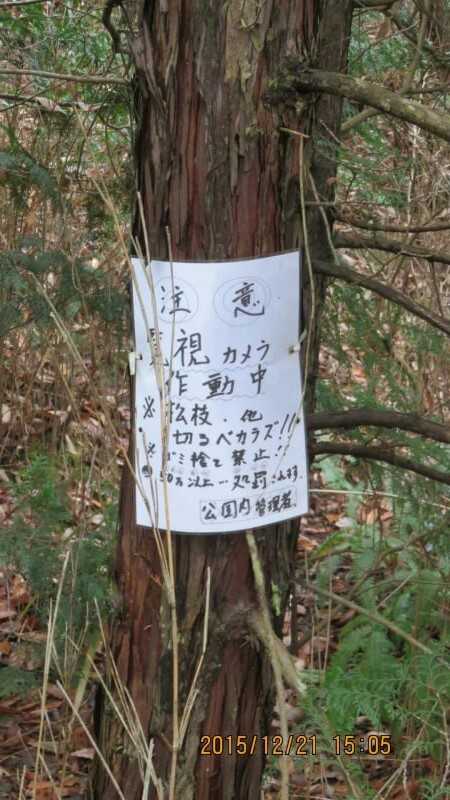 注意
監視カメラ
作動中
※松枝、他
切るベカラズ!!
※ゴミ捨て禁止!
●50万以上…処罰されます.
公園内管理者
2015/12/21 15:05